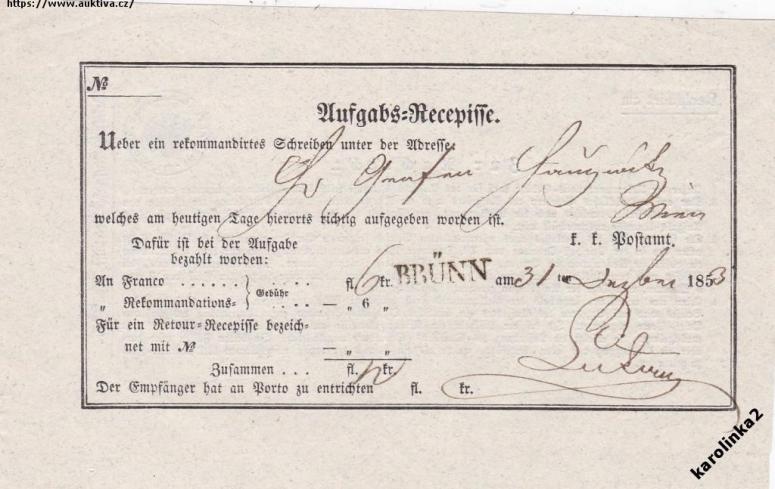 https://www.auktiva.cz/
№
Aufgabs-Recepisse.
Ueber ein rekommandirtes Schreiben unter der Adresse:
Grafen
welches am heutigen Tage hierorts richtig aufgegeben worden ist.
Wien
Dafür ist bei der Aufgabe
bezahlt worden:
k. k. Postamt.
An Franco . . . . . . . . . . fl. 6 kr. BRÜNN am 31 ten Dezber 1853
„ Rekommandations- Gebühr . . . . — „ 6 „
Für ein Retour-Recepisse bezeich-
net mit № — „ „
Zusammen . . . fl. kr.
Der Empfänger hat an Porto zu entrichten fl. kr.
karolinka2